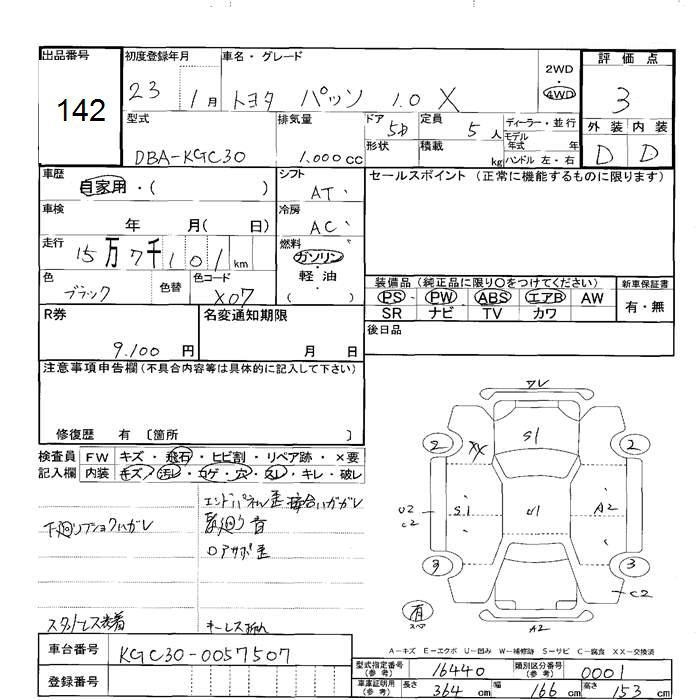 出品番号 142
初度登録年月 23 1月
車名・グレード トヨタ パッソ 1.0 X
2WD ・ 4WD
評価点 3
外装 D 内装 D
型式 DBA-KGC30
排気量 1,000cc
ドア 5D
形状
定員 5人
積載 kg
ディーラー・並行
モデル年式 年
ハンドル 左・右
車歴 自家用・( )
シフト AT
セールスポイント (正常に機能するものに限ります)
車検 年 月( 日)
冷房 AC
走行 15万7千101km
燃料 ガソリン・軽油 ( )
色 ブラック 色替
色コード X07
装備品 (純正品に限り○をつけてください)
PS ・ PW ・ ABS ・ エアB ・ AW
SR ナビ TV カワ
新車保証書 有・無
R券 9.100円
名変通知期限 月 日
後日品
注意事項申告欄 (不具合内容等は具体的に記入して下さい)
修復歴 有 〔箇所 〕
検査員記入欄
FW キズ・飛石・ヒビ割・リペア跡・×要
内装 キズ・汚レ・コゲ・穴・スレ・キレ・破レ
エンドパネル歪 接合ハガレ
下廻りブショクハガレ
音
ロアサポ歪
スタットレス装着
キーレス
ワレ
2 XX S1 2
U2 C2 S1 U1 A2
3 3
C2
有 スペア A2
A-キズ E-エクボ U-凹み W-補修跡 S-サビ C-腐食 XX-交換済
車台番号 KGC30-0057507
登録番号
型式指定番号(参考) 16440 類別区分番号(参考) 0001
車庫証明用(参考) 長さ 364cm 幅 166cm 高さ 153cm